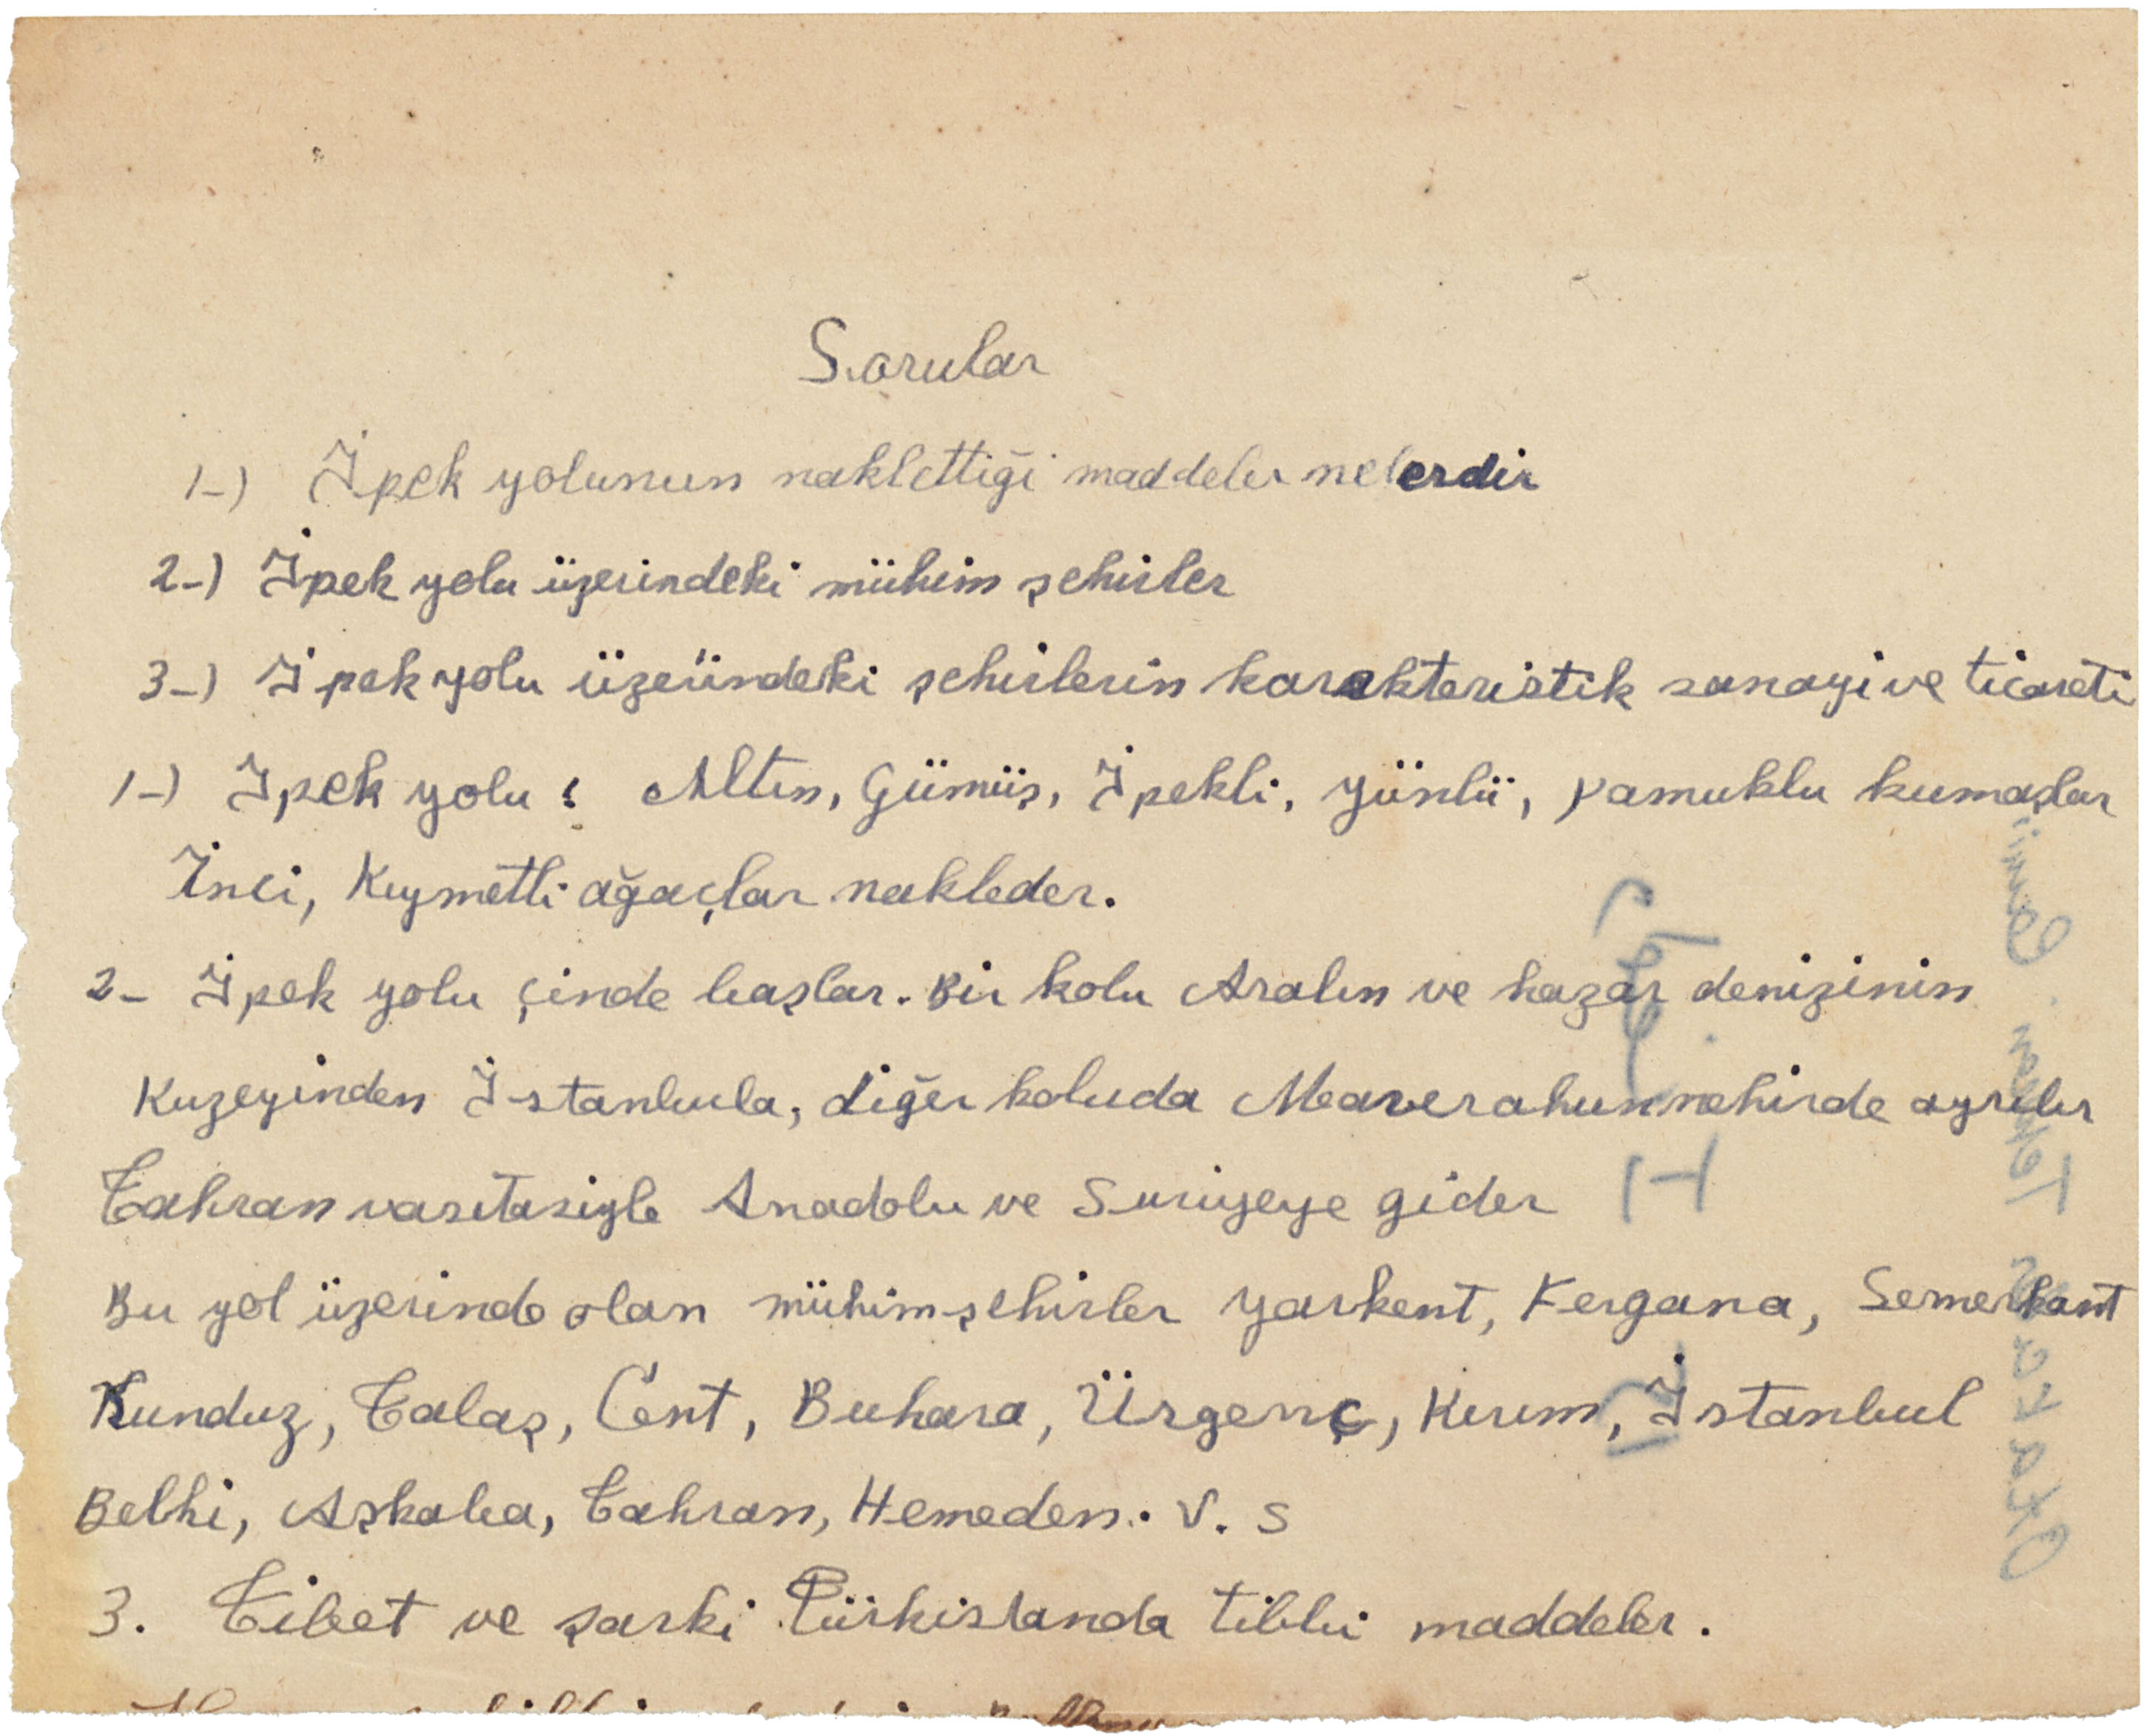 Sorular
1-) İpek yolunun naklettiği maddeler nelerdir
2-) İpek yolu üzerindeki mühim şehirler
3-) İpek yolu üzerindeki şehirlerin karakteristik sanayi ve ticareti
1-) İpek yolu : Altın, Gümüş, İpekli, yünlü, pamuklu kumaşlar
İnci, Kıymetli ağaçlar nakleder.
2- İpek yolu çinde başlar. Bir kolu Aralın ve hazar denizinin
Kuzeyinden İstanbula, diğer koluda Maverahunnehirde ayrılır
Tahran vasıtasiyle Anadolu ve Suriyeye gider
Bu yol üzerinde olan mühim şehirler Yarkent, Fergana, Semerkant
Kunduz, Talaş, Cent, Buhara, Ürgenç, Kırım, İstanbul
Belhi, Aşkaba, Tahran, Hemeden. V. S
3. Tibet ve şarki Türkistanda tibbi maddeler.